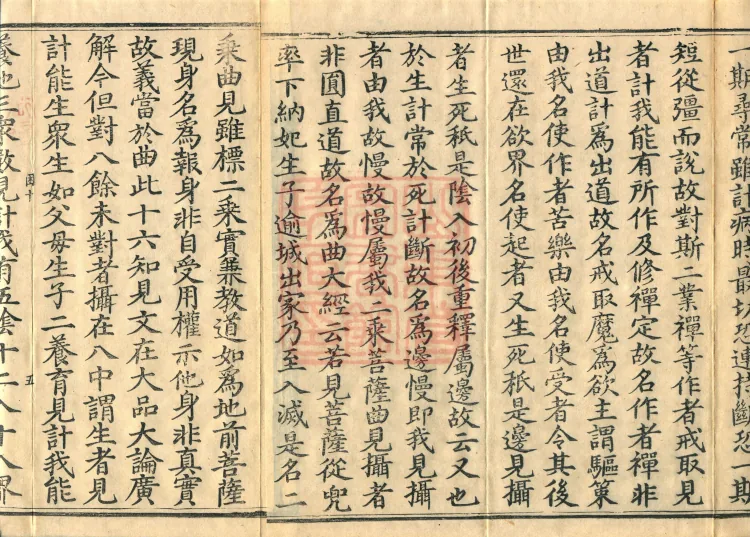 一期尋常雖計病時最切恐連持斷恐一期
短從彊而說故對斯二業禪等作者戒取見
者計我能有所作及修禪定故名作者禪非
出道計為出道故名戒取魔為欲主謂驅策
由我名使作者苦樂由我名使受者令其後
世還在欲界名使起者又生死秖是邊見攝
者生死秖是陰入初後重釋屬邊故云又也
於生計常於死計斷故名為邊慢即我見攝
者由我故慢故慢屬我二乘菩薩曲見攝者
非圓直道故名為曲大經云若見菩薩從兜
率下納妃生子逾城出家乃至入滅是名二
乘曲見雖標二乘實兼教道如爲地前菩薩
現身名為報身非自受用權示他身非真實
故義當於曲此十六知見文在大品大論廣
解今但對八餘未對者攝在八中謂生者見
計能生衆生如父母生子二養育見計我能
養他三衆數見計我有五陰十二入十八界
五